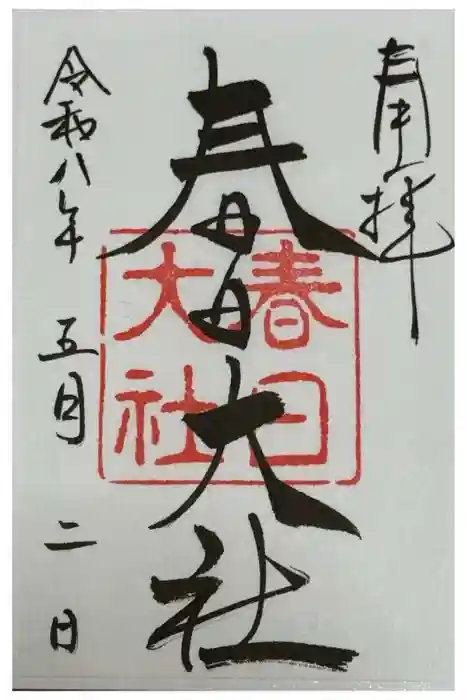 奉拝
春日大社
春日
大社
令和八年五月二日